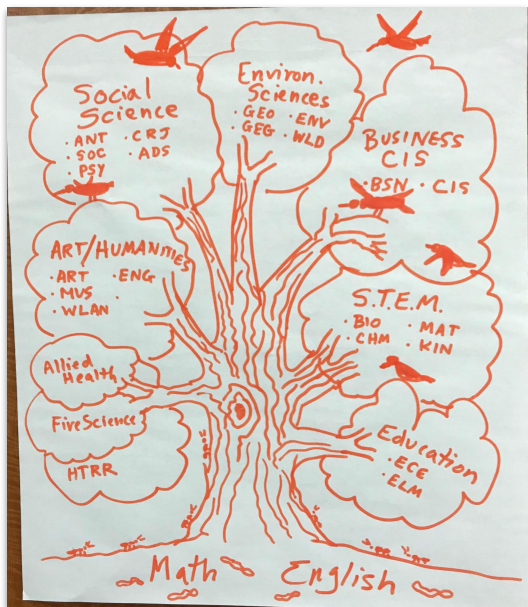 Social
Science
· ANT · CRJ
· SOC · ADS
· PSY
Environ.
Sciences
· GEO · ENV
· GEG · WLD
BUSINESS
CIS
· BSN · CIS
ART/HUMANITIES
· ART · ENG
· MUS ·
· WLAN
S.T.E.M.
· BIO · MAT
· CHM · KIN
Allied
Health
Fire Science
HTRR
Education
· ECE
· ELM
Math English